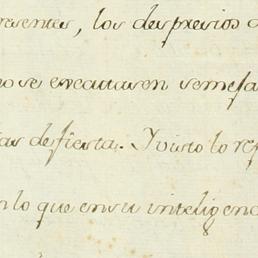 resentes, los desprecios
no se executasen semeja
ias de fiesta. Y visto lo ref
n lo que en su inteligenc